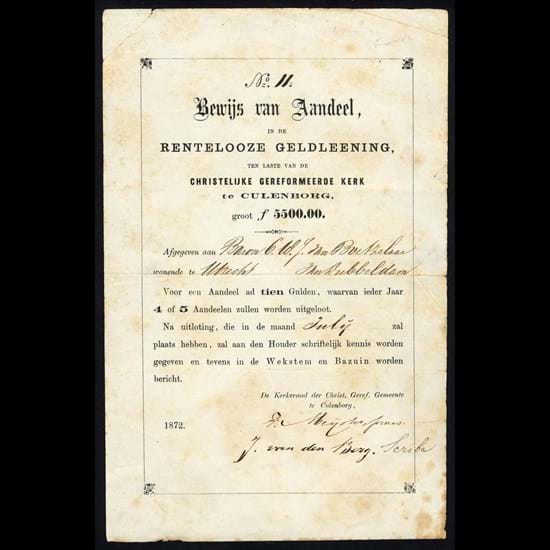 No. 11.
Bewijs van Aandeel,
IN DE
RENTELOOZE GELDLEENING,
TEN LASTE VAN DE
CHRISTELIJKE GEREFORMEERDE KERK
te CULENBORG,
groot ƒ 5500.00.
Afgegeven aan Baron C. W. J. van Boetzelaer
wonende te Utrecht van Dubbeldam
Voor een Aandeel ad tien Gulden, waarvan ieder Jaar
4 of 5 Aandeelen zullen worden uitgeloot.
Na uitloting, die in de maand July zal
plaats hebben, zal aan den Houder schriftelijk kennis worden
gegeven en tevens in de Wekstem en Bazuin worden
bericht.
De Kerkeraad der Christ. Geref. Gemeente
te Culenborg,
1872.
J. van den Berg. Scriba